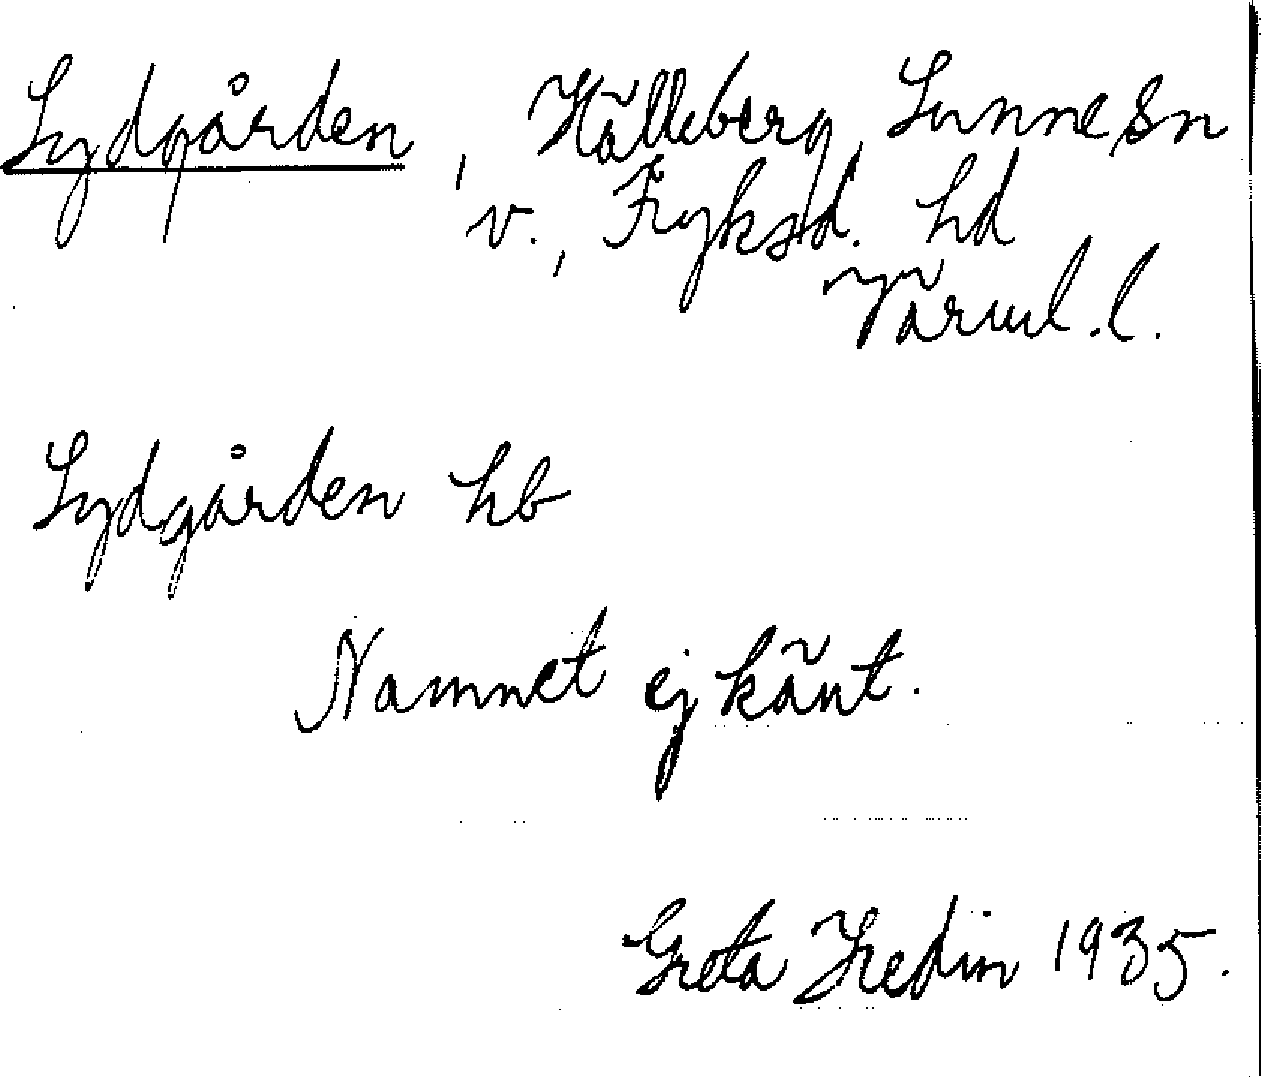 Lydgården, Hälleberg, Sunne sn
v., Fryksd. hd
Värml. l.
Lydgården hb
Namnet ej känt.
Greta Hedin 1935.